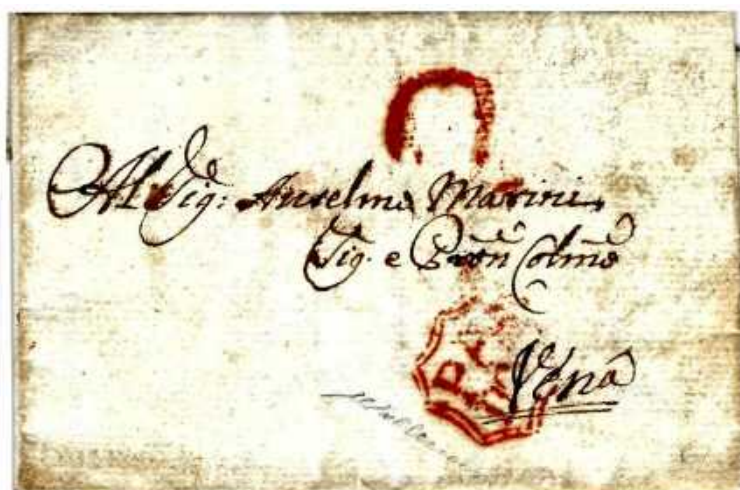 Al Sig: Anselmo Marini
Sig. e Pron Colmo
Vena